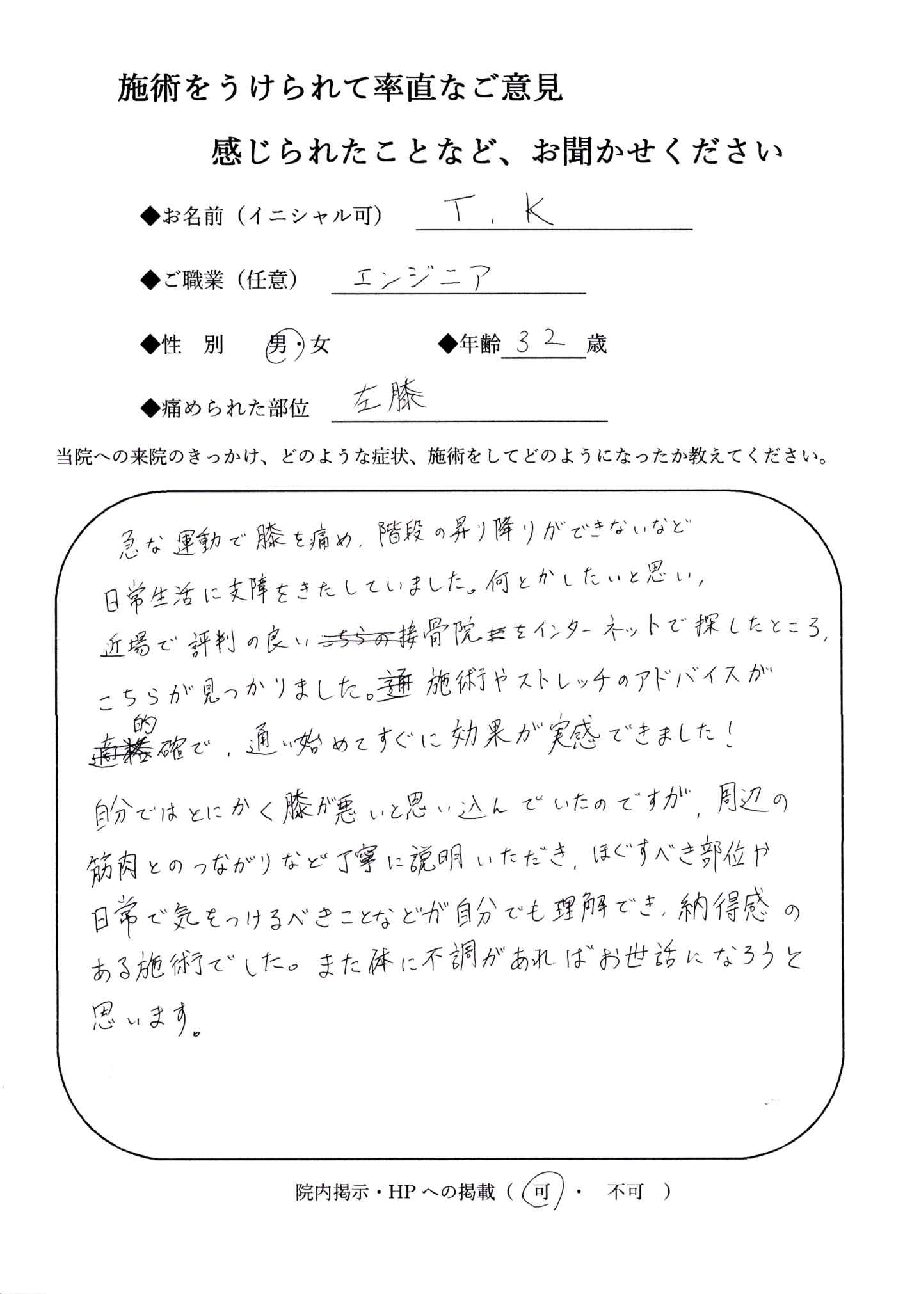 施術をうけられて率直なご意見
感じられたことなど、お聞かせください
◆お名前（イニシャル可） T.K
◆ご職業（任意） エンジニア
◆性 別 男・女 ◆年齢 32 歳
◆痛められた部位 左膝
当院への来院のきっかけ、どのような症状、施術をしてどのようになったか教えてください。
急な運動で膝を痛め、階段の昇り降りができないなど
日常生活に支障をきたしていました。何とかしたいと思い、
近場で評判の良いこちらの接骨院をインターネットで探したところ、
こちらが見つかりました。通施術やストレッチのアドバイスが
的確で、通い始めてすぐに効果が実感できました！
自分ではとにかく膝が悪いと思い込んでいたのですが、周辺の
筋肉とのつながりなど丁寧に説明いただき、ほぐすべき部位や
日常で気をつけるべきことなどが自分でも理解でき、納得感の
ある施術でした。また体に不調があればお世話になろうと
思います。
院内掲示・HPへの掲載（ 可 ・ 不可 ）